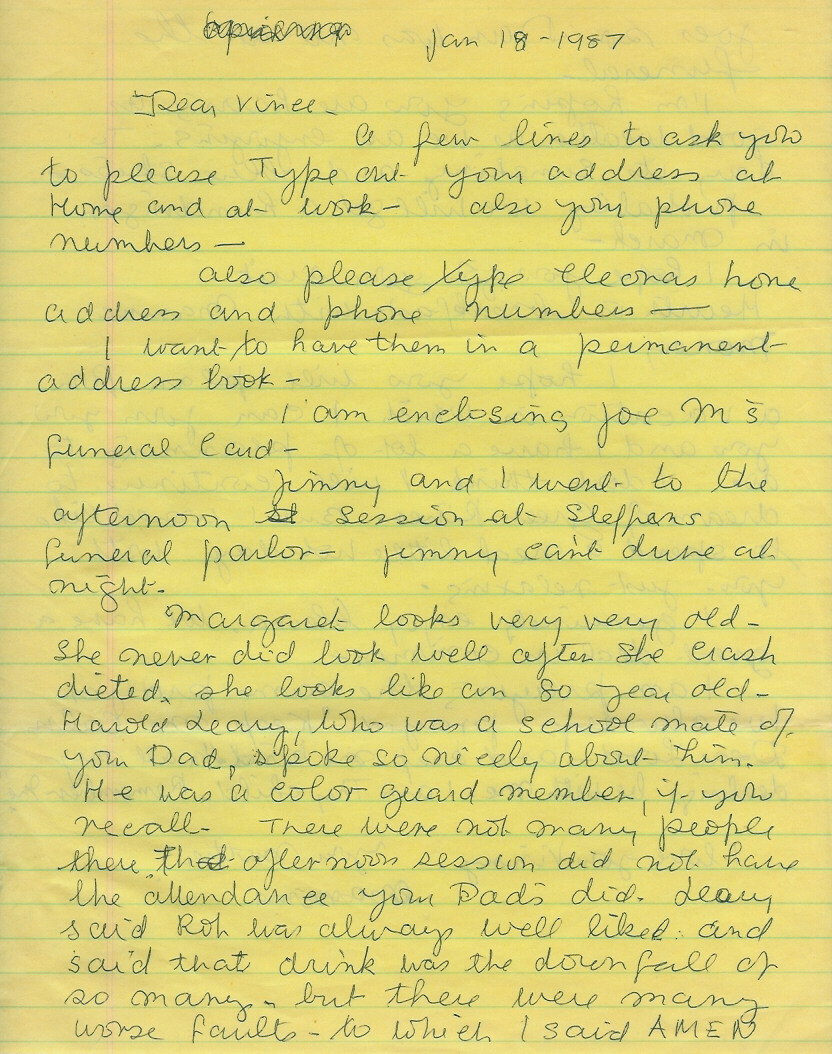 Jan 18-1987
Dear Vince-
A few lines to ask you
to please Type out your address at
Home and at work- also your phone
numbers-
also please type Eleonas home
address and phone numbers-
I want to have them in a permanent
address book-
I am enclosing Joe M's
funeral Card-
Jimmy and I went to the
afternoon session at Steffans
funeral parlor- Jimmy can't drive at
night.
Margaret looks very very old-
She never did look well after she crash
dieted. she looks like an 80 year old-
Harold Leary, who was a school mate of
your Dad, spoke so nicely about him.
He was a color guard member, if you
recall- There were not many people
there, that afternoon session did not have
the attendance your Dad's did. Leary
said Rob was always well liked. and
said that drink was the downfall of
so many- but there were many
worse faults- to which I said AMEN